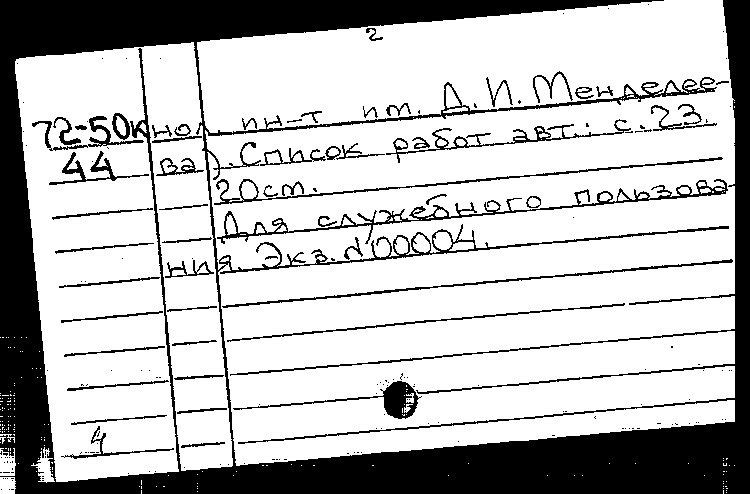 2
72-50к нол. ин-т им. Д. И. Менделее-
44 ва). Список работ авт.: с. 23.
20 см.
Для служебного пользова-
ния. Экз. №00004.
4